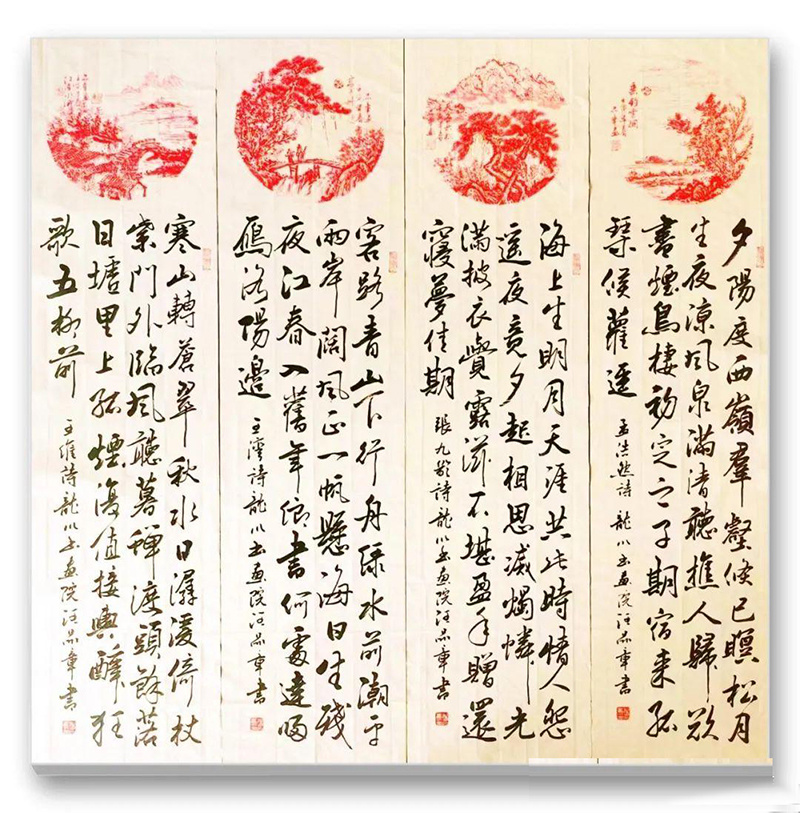 夕陽度西嶺羣壑倏已暝松月
生夜涼風泉滿清聽樵人歸欲
盡煙鳥棲初定之子期宿來孤
琴候蘿逕
孟浩然詩 龍川书画院汪品章書
海上生明月天涯共此時情人怨
遥夜竟夕起相思滅燭憐光
滿披衣覺露滋不堪盈手贈還
寢夢佳期
張九齡詩 龍川书画院汪品章書
客路青山下行舟绿水前潮平
兩岸闊風正一帆懸海日生殘
夜江春入舊年鄉書何處達歸
雁洛陽邊
王灣詩 龍川书画院汪品章書
寒山轉蒼翠秋水日潺湲倚杖
柴門外臨風聽暮蟬渡頭餘落
日墟里上孤煙復值接輿醉狂
歌五柳前
王維詩 龍川书画院汪品章書